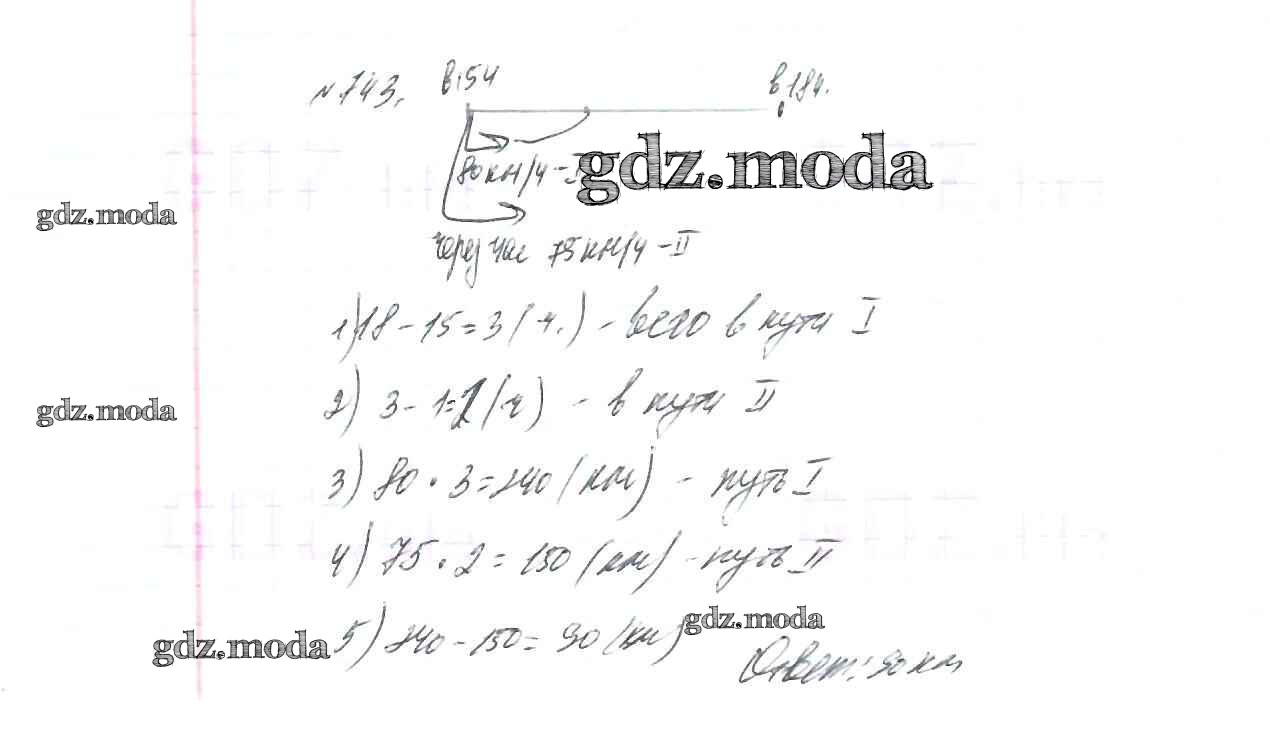 № 743. в 15ч в 18ч.
80 км/ч - I gdz.moda
gdz.moda
через час 75 км/ч - II
1) 18 - 15 = 3 (ч.) - всего в пути I
2) 3 - 1 = 2 (ч) - в пути II
gdz.moda
3) 80 · 3 = 240 (км) - путь I
4) 75 · 2 = 150 (км) - путь II
gdz.moda 5) 240 - 150 = 90 (км) gdz.moda
Ответ: 90 км